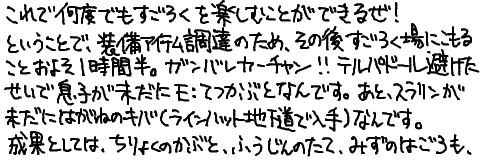 これで何度でもすごろくを楽しむことができるぜ!
ということで、装備アイテム調達のため、その後すごろく場にこもる
ことおよそ1時間半。ガンバレカーチャン!!テルパドール避けた
せいで息子が未だにE:てつかぶとなんです。あと、スラリンが
未だにはがねのキバ(ラインハット地下道で入手)なんです。
成果としては、ちりょくのかぶと、ふうじんのたて、みずのはごろも、